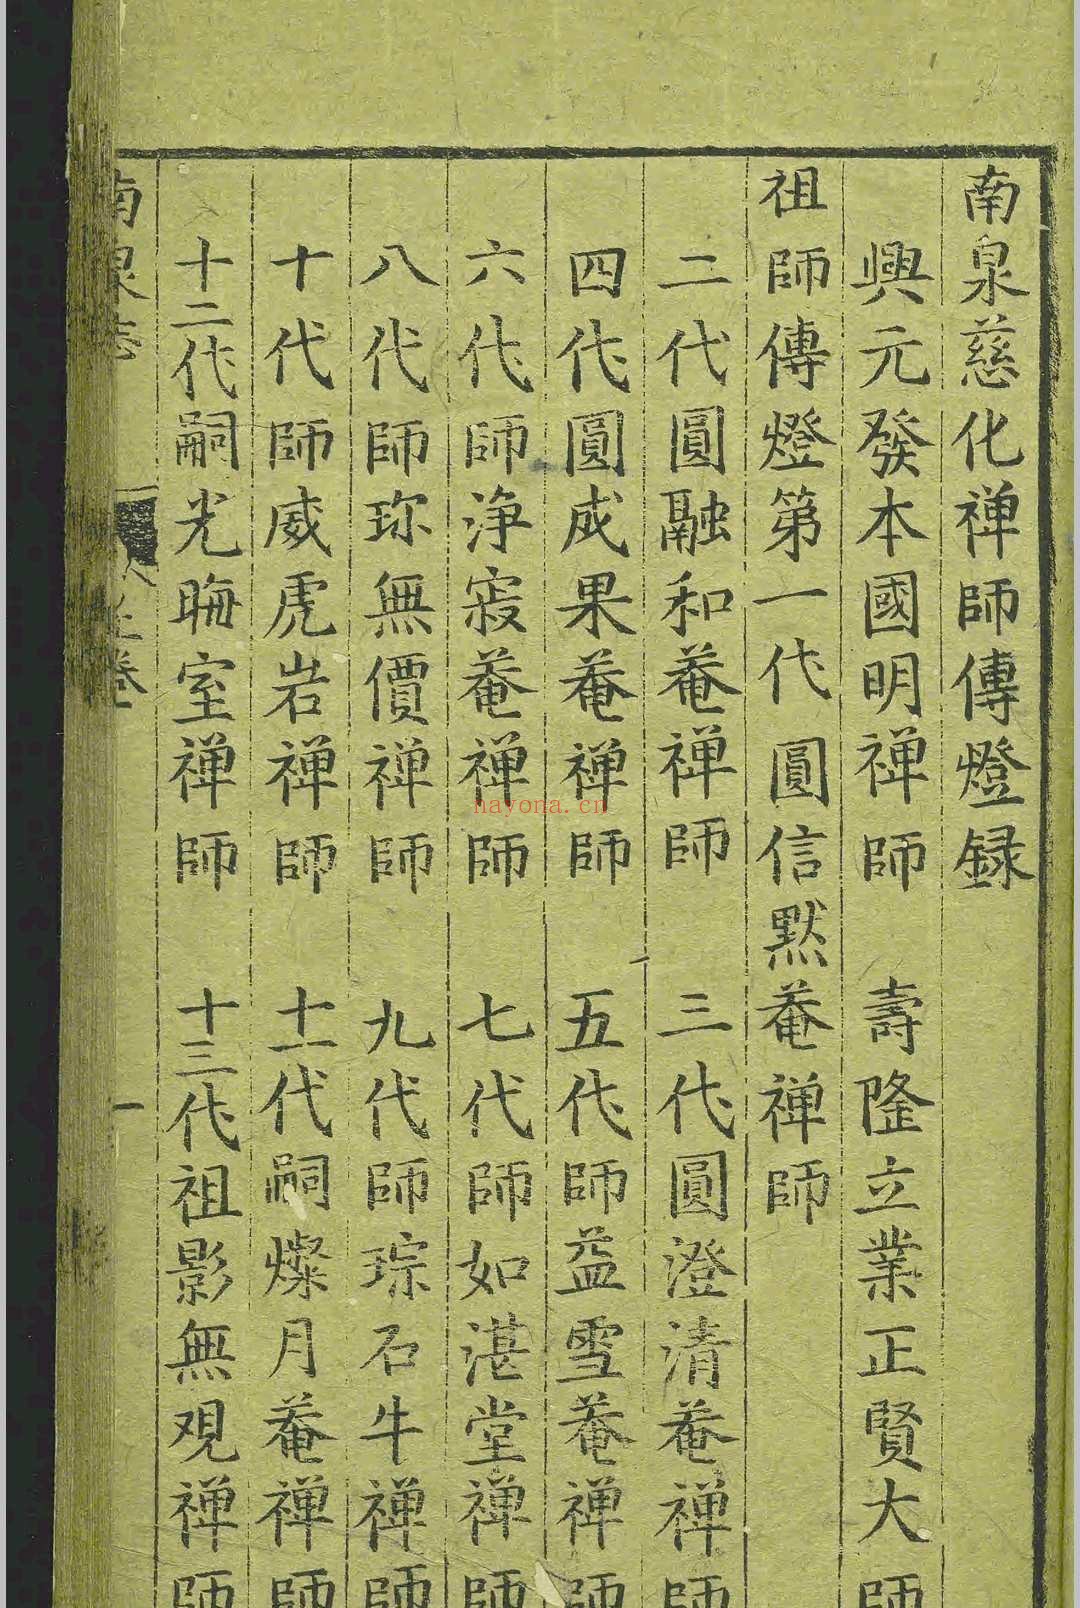 南泉慈化禅師傳燈録
興元發本國明禅師　壽隆立業正賢大師
祖師傳燈第一代圓信默菴禅師
二代圓融和菴禅師　三代圓澄清菴禅師
四代圓成果菴禅師　五代師益雪菴禅師
六代師淨寂菴禅師　七代師如湛堂禅師
八代師珎無價禅師　九代師琮石牛禅師
十代師威虎岩禅師　十一代嗣燦月菴禅師
十二代嗣光晦室禅師　十三代祖影無观禅師
南泉志　上卷　一
hayona.cn